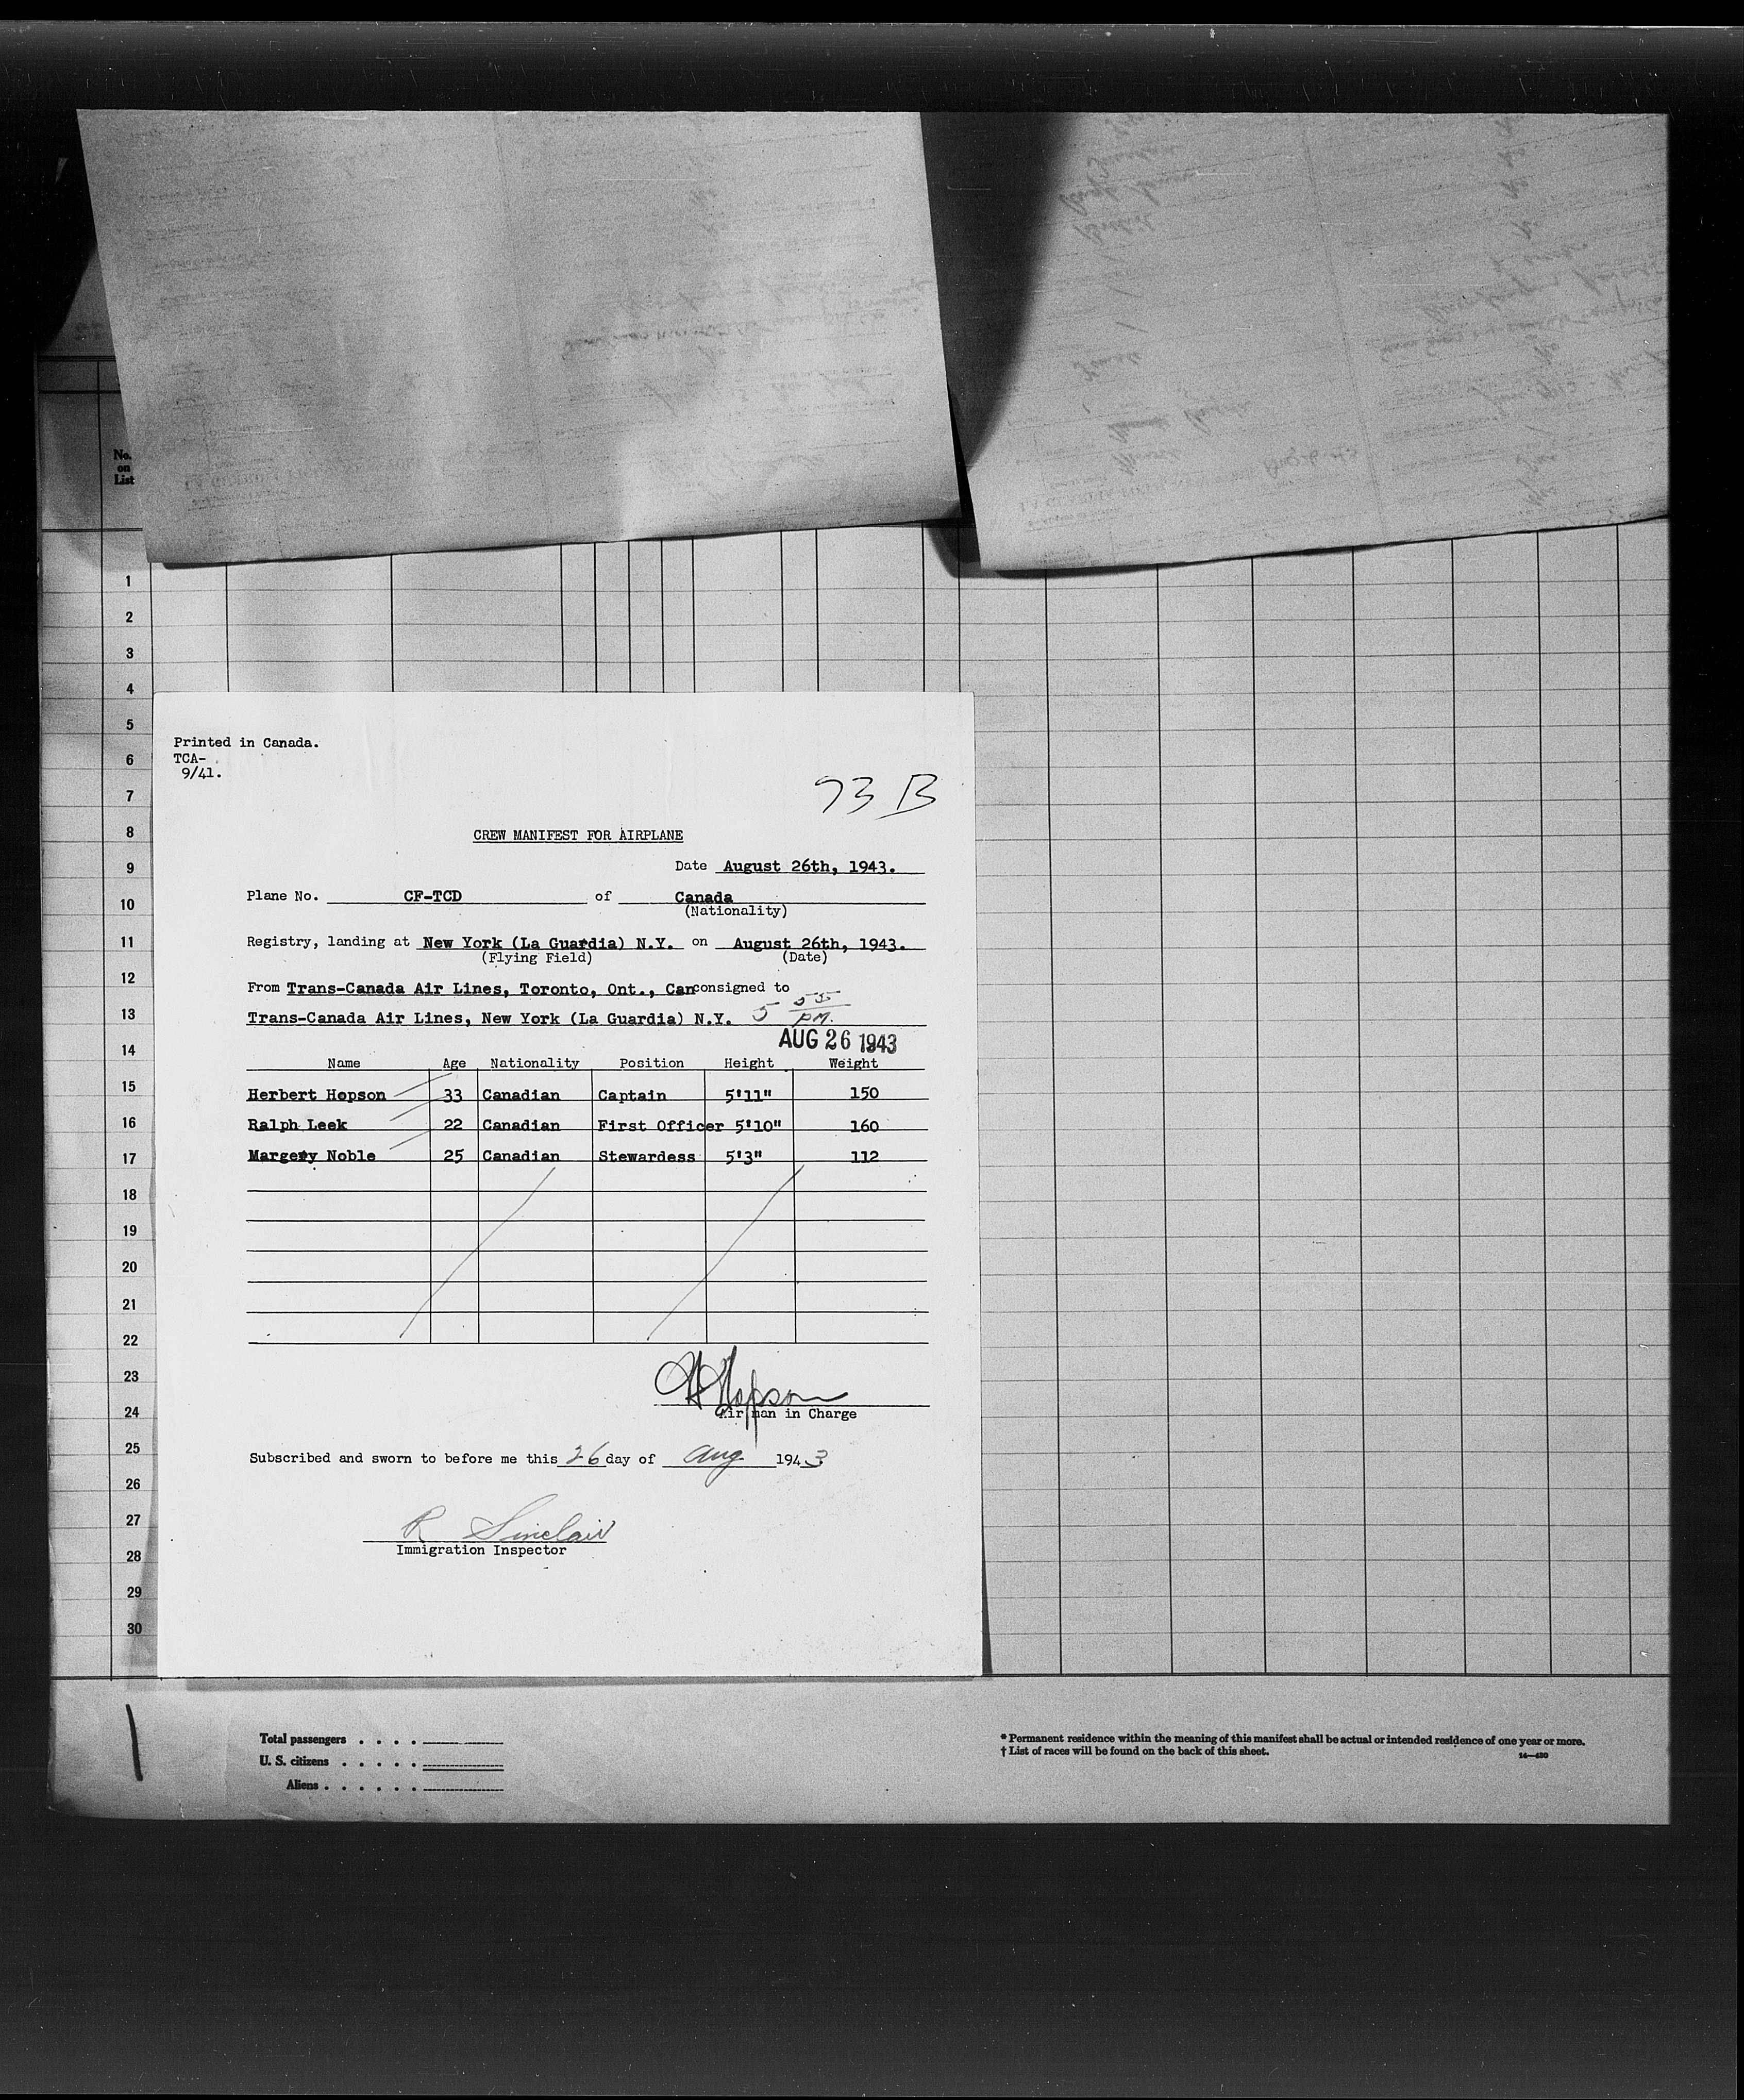 No.
on
List
1
2
3
4
5
6
7
8
9
10
11
12
13
14
15
16
17
18
19
20
21
22
23
24
25
26
27
28
29
30
Printed in Canada.
TCA-
9/41.
93 B
CREW MANIFEST FOR AIRPLANE
Date August 26th, 1943.
Plane No. CF-TCD of Canada
(Nationality)
Registry, landing at New York (La Guardia) N.Y. on August 26th, 1943.
(Flying Field) (Date)
From Trans-Canada Air Lines, Toronto, Ont., Canconsigned to
Trans-Canada Air Lines, New York (La Guardia) N.Y. 5 55 PM.
AUG 26 1943
Name Age Nationality Position Height Weight
Herbert Hopson 33 Canadian Captain 5'11" 150
Ralph Leek 22 Canadian First Officer 5'10" 160
Margery Noble 25 Canadian Stewardess 5'3" 112
H Hopson
Airman in Charge
Subscribed and sworn to before me this 26 day of Aug 1943
R Sinclair
Immigration Inspector
Total passengers
U. S. citizens
Aliens
* Permanent residence within the meaning of this manifest shall be actual or intended residence of one year or more.
† List of races will be found on the back of this sheet. 14—480